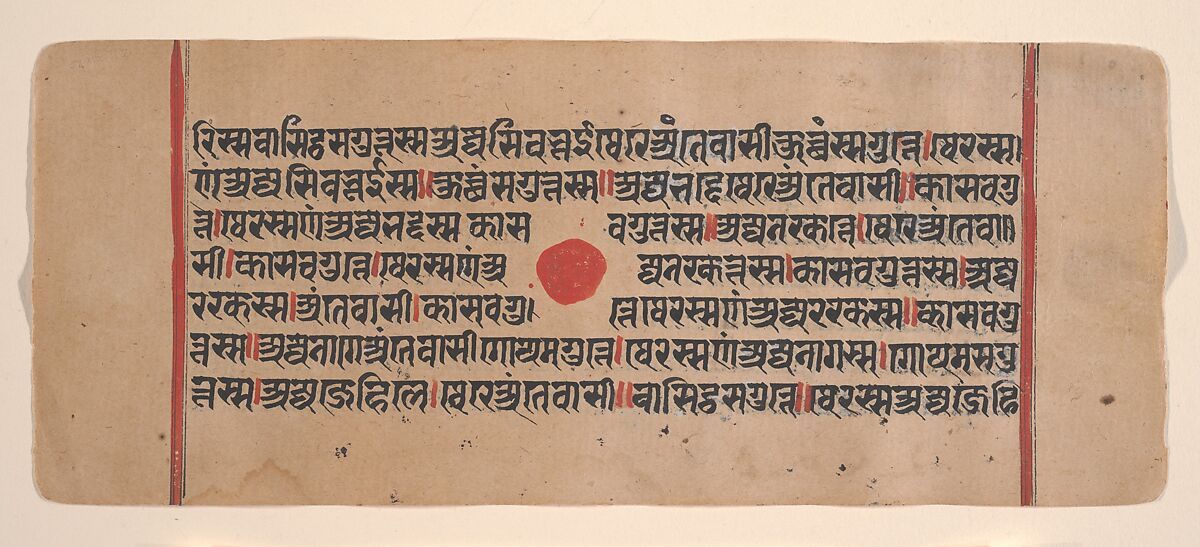 रिस्सवासिट्ठसगुत्तस्सअज्जसिवभूईथेरेअंतेवासीकुच्छंसगुत्ते।थेरस्स।
णंअज्जसिवभूईस्स॥कुच्छंसगुत्तस्स॥अज्जभद्देथेरेअंतेवासी॥कासवगु
त्ते।थेरस्सणंअज्जभद्दस्सकासवगुत्तस्स॥अज्जनरकत्ते।थेरेअंतेवा॥
सी।कासवगुत्ते।थेरस्सणंअज्जनरकत्तस्स।कासवगुत्तस्स।अज्ज
ररकस्स।अंतेवासी।कासवगु।त्ते।थेरस्सणंअज्जररकस्स॥कासवगु
त्तस्स॥अज्जनागेअंतेवासीगोयमगुत्ते।थेरस्सणंअज्जनागस्स।गोयमसगु
त्तस्स।अज्जजेहिले।थेरेअंतेवासी॥वासिट्ठसगुत्ते॥थेरस्सअज्जजेहि